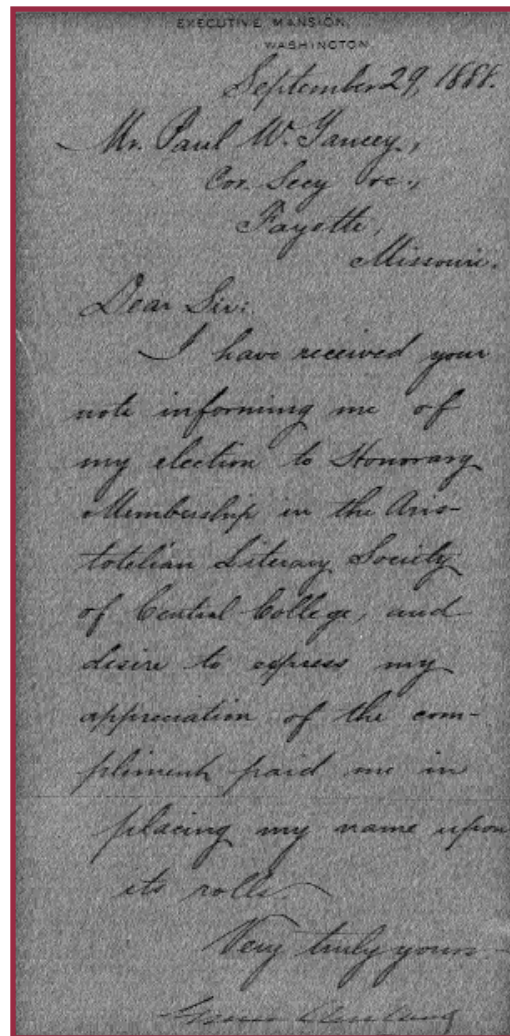 EXECUTIVE MANSION,
WASHINGTON
September 29, 1888.
Mr. Paul W. Yancey,
Cor. Secy &c.,
Fayette,
Missouri.
Dear Sir:
I have received your
note informing me of
my election to Honorary
Membership in the Aris-
totelian Literary Society
of Central College, and
desire to express my
appreciation of the com-
pliment paid me in
placing my name upon
its rolls.
Very truly yours
Grover Cleveland